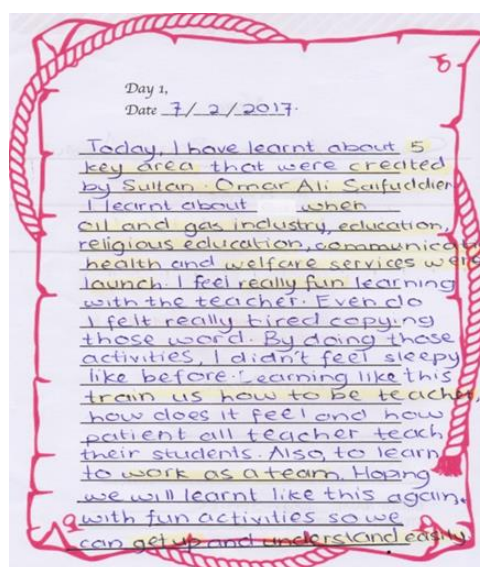 Day 1,
Date 7/2/2017.
Today, I have learnt about 5
key area that were created
by Sultan. Omar Ali Saifuddien
I learnt about when
oil and gas industry, education,
religious education, communicati
health and welfare services were
launch. I feel really fun learning
with the teacher. Even do
I felt really tired copying
those word. By doing those
activities, I didn't feel sleepy
like before. Learning like this
train us how to be teacher,
how does it feel and how
patient all teacher teach
their students. Also, to learn
to work as a team. Hoping
we will learnt like this again,
with fun activities so we
can get up and understand easily.